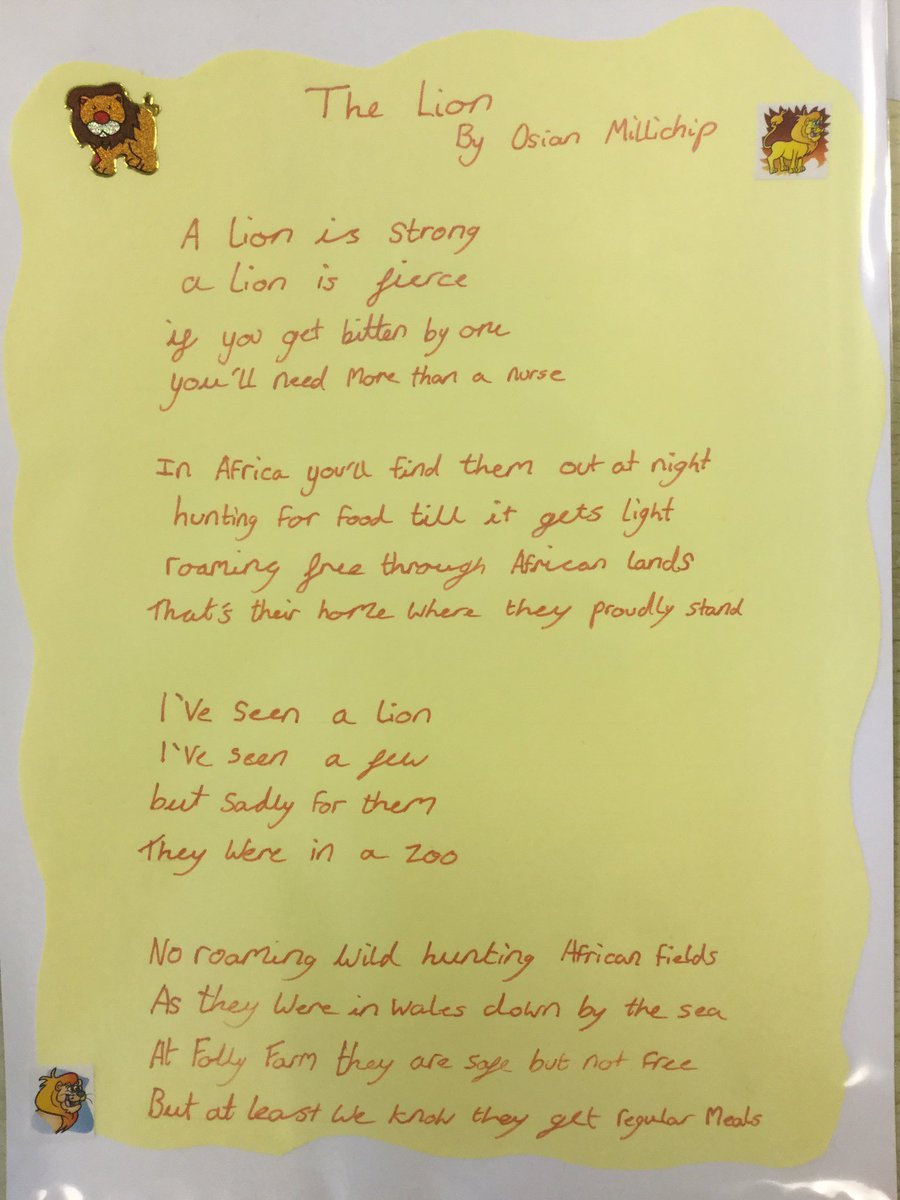 The Lion
By Osian Millichip
A lion is strong
a lion is fierce
if you get bitten by one
you'll need more than a nurse
In Africa you'll find them out at night
hunting for food till it gets light
roaming free through African lands
That's their home where they proudly stand
I've seen a lion
I've seen a few
but sadly for them
They were in a zoo
No roaming wild hunting African fields
As they were in Wales down by the sea
At Folly Farm they are safe but not free
But at least we know they get regular meals